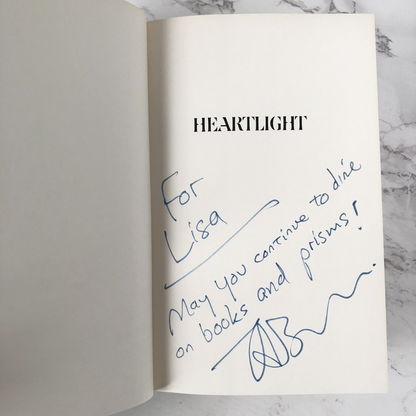 HEARTLIGHT
For
Lisa
May you continue to dine
on books and prisms!